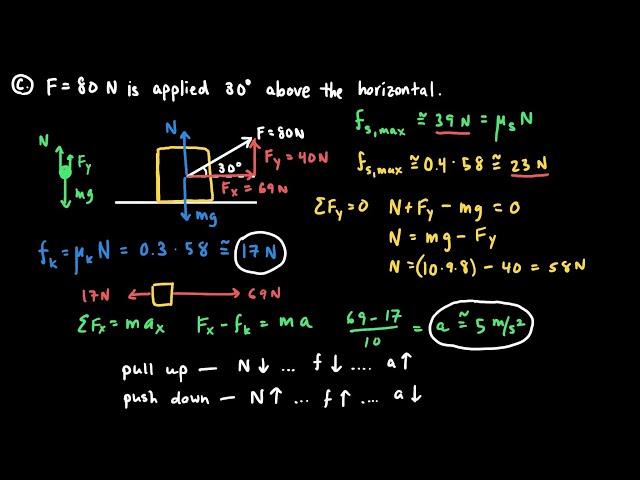 C. F = 80 N is applied 30° above the horizontal.
N
Fy
mg
N
F = 80N
30°
Fy = 40N
Fx = 69N
mg
fs,max ≅ 39 N = μs N
fs,max ≅ 0.4 · 58 ≅ 23 N
ΣFy = 0 N + Fy − mg = 0
N = mg − Fy
N = (10 · 9.8) − 40 = 58N
fk = μk N = 0.3 · 58 ≅ 17 N
17N 69N
ΣFx = max Fx − fk = ma 69 − 17 / 10 = a ≅ 5 m/s²
pull up — N↓ ... f↓ .... a↑
push down — N↑ ... f↑ .... a↓